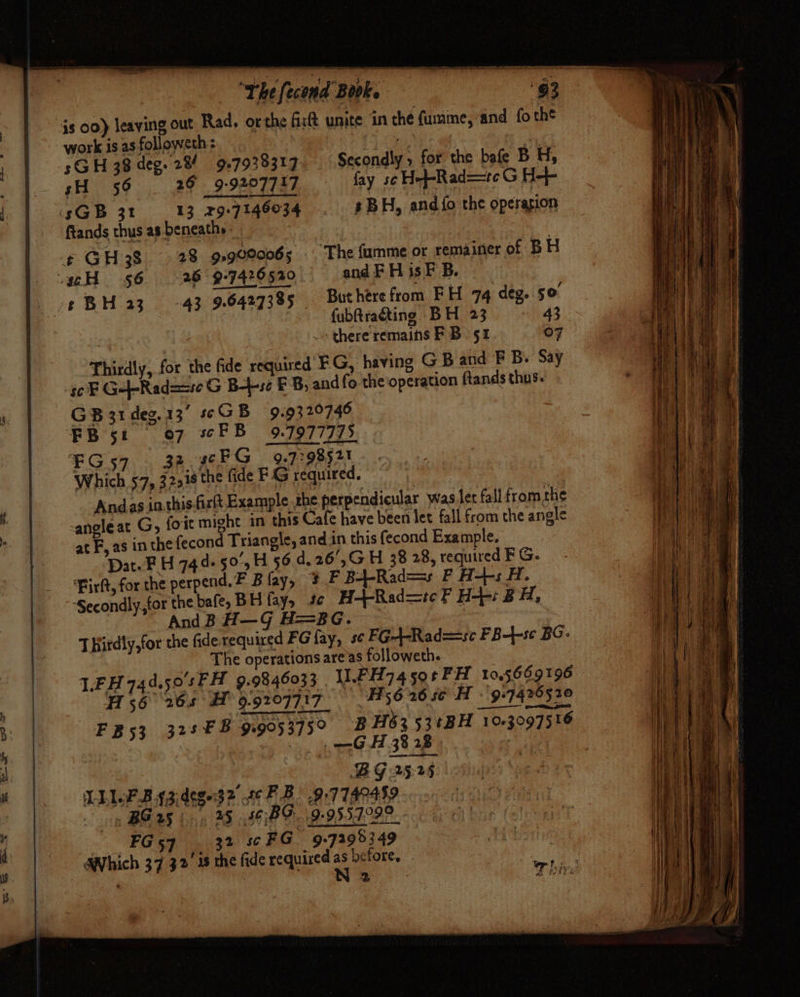 The ſecond Book. 93
is 00) leaving out Rad. or the firſt unite in the ſumme, and ſo the
work is as followeth:
sGH 38 deg. 28′ 9.7938317
sH 56 26 9.9207717
sGB 31 13 29.7146034
ſtands thus as beneath.
Secondly, for the baſe BH,
ſay sc H+Rad=tc G H+
t BH, and ſo the operation
t GH 38 28 9.9000065
scH 56 26 9.7426520
t BH 23 43 9.6427385
The ſumme or remainer of BH
and F H is F B.
But here from FH 74 deg. 50′
ſubſtracting BH 23 43
there remains F B 51 07
Thirdly, for the ſide required FG, having G B and F B. Say
sc F G+Rad=sc G B+sc F B, and ſo the operation ſtands thus.
GB 31 deg. 13′ scGB 9.9320746
FB 51 07 scFB 9.7977775
FG 57 32 scFG 9.7298521
Which 57, 32, is the ſide F G required.
And as in this firſt Example the perpendicular was let fall from the
angle at G, ſo it might in this Caſe have been let fall from the angle
at F, as in the ſecond Triangle, and in this ſecond Example.
Dat. F H 74 d. 50′, H 56 d. 26′, G H 38 28, required F G.
Firſt, for the perpend. F B ſay, s F B+Rad=s F H+s H.
Secondly, for the baſe, BH ſay, sc H+Rad=tc F H+t B H,
And B H—G H=BG.
Thirdly, for the ſide required FG ſay, sc FG+Rad=sc FB+sc BG.
The operations are as followeth.
I. FH 74d. 50′ sFH 9.9846033
H 56 26 s H 9.9207717
FB 53 32 s F B 9.9053750
II. FH 74 50 t FH 10.5669196
H 56 26 sc H 9.7426520
B H 63 53 t BH 10.3097516
—G H 38 28
B G 25.25
III. F B 53 deg. 32′ sc F B 9.7740459
BG 25 25 sc BG 9.9557090
FG 57 32 sc FG 9.7298349
Which 37 32′ is the ſide required as before.
N 2